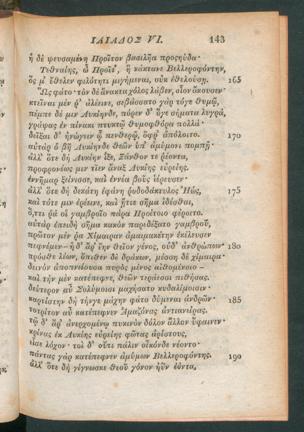 ΙΛΙΑΔΟΣ VI. 143
ἡ δὲ ψευσαμένη Προῖτον βασιλῆα προςηύδα·
Τεθναίης, ὦ Προῖτ', ἢ κάκτανε Βελλεροφόντην,
ὅς μ' ἔθελεν φιλότητι μιγήμεναι, οὐκ ἐθελούσῃ. 165
Ὣς φάτο· τὸν δὲ ἄνακτα χόλος λάβεν, οἷον ἄκουσεν·
κτεῖναι μέν ῥ' ἀλέεινε, σεβάσσατο γὰρ τόγε θυμῷ,
πέμπε δέ μιν Λυκίηνδε, πόρεν δ' ὅγε σήματα λυγρά,
γράψας ἐν πίνακι πτυκτῷ θυμοφθόρα πολλά·
δεῖξαι δ' ἠνώγειν ᾧ πενθερῷ, ὄφρ' ἀπόλοιτο. 170
αὐτὰρ ὁ βῆ Λυκίηνδε θεῶν ὑπ' ἀμύμονι πομπῇ·
ἀλλ' ὅτε δὴ Λυκίην ἷξε, Ξάνθον τε ῥέοντα,
προφρονέως μιν τίεν ἄναξ Λυκίης εὐρείης.
ἐννῆμαρ ξείνισσε, καὶ ἐννέα βοῦς ἱέρευσεν·
ἀλλ' ὅτε δὴ δεκάτη ἐφάνη ῥοδοδάκτυλος Ἠώς, 175
καὶ τότε μιν ἐρέεινε, καὶ ᾔτεε σῆμα ἰδέσθαι,
ὅ,ττι ῥά οἱ γαμβροῖο πάρα Προίτοιο φέροιτο.
αὐτὰρ ἐπειδὴ σῆμα κακὸν παρεδέξατο γαμβροῦ,
πρῶτον μέν ῥα Χίμαιραν ἀμαιμακέτην ἐκέλευσεν
πεφνέμεν—ἡ δ' ἄρ' ἔην θεῖον γένος, οὐδ' ἀνθρώπων· 180
πρόσθε λέων, ὄπιθεν δὲ δράκων, μέσση δὲ χίμαιρα·
δεινὸν ἀποπνείουσα πυρὸς μένος αἰθομένοιο—
καὶ τὴν μὲν κατέπεφνε, θεῶν τεράεσσι πιθήσας.
δεύτερον αὖ Σολύμοισι μαχήσατο κυδαλίμοισιν·
καρτίστην δὴ τήνγε μάχην φάτο δύμεναι ἀνδρῶν· 185
τοτρίτον αὖ κατέπεφνεν Ἀμαζόνας ἀντιανείρας.
τῷ δ' ἄρ' ἀνερχομένῳ πυκινὸν δόλον ἄλλον ὕφαινεν·
κρίνας ἐκ Λυκίης εὐρείης φῶτας ἀρίστους,
εἷσε λόχον· τοὶ δ' οὔτι πάλιν οἶκόνδε νέοντο·
πάντας γὰρ κατέπεφνεν ἀμύμων Βελλεροφόντης. 190
ἀλλ' ὅτε δὴ γίγνωσκε θεοῦ γόνον ἠῢν ἐόντα,